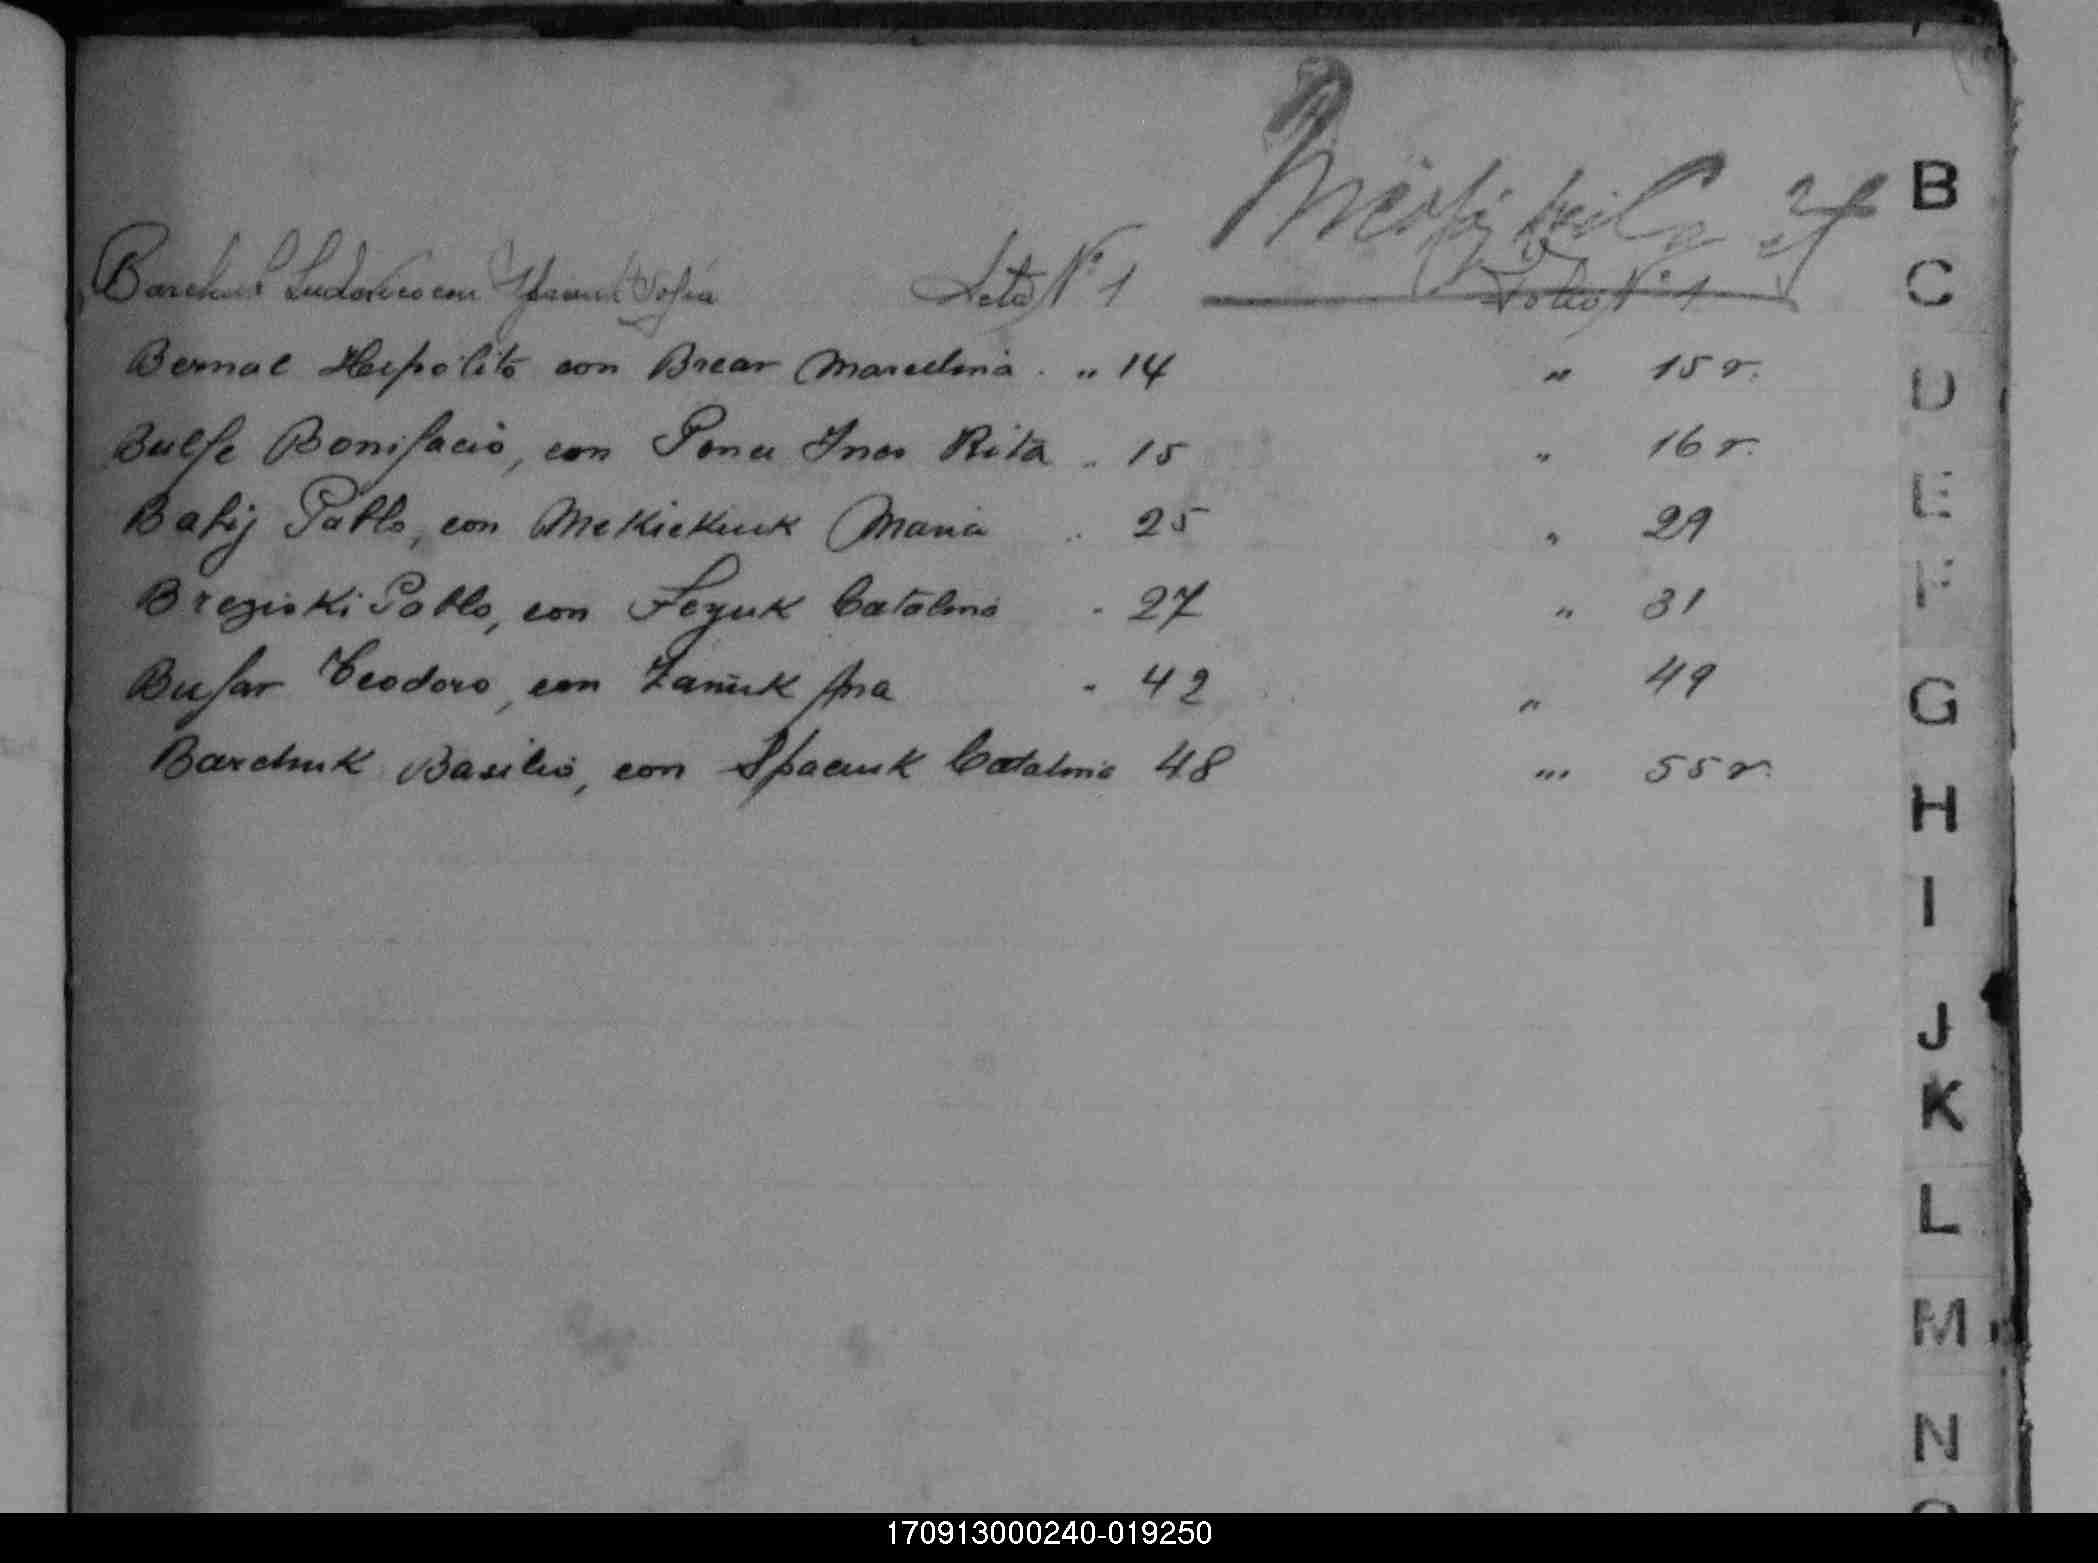 Ludovico con Sofía Acta N° 1 Folio N° 1
Bernal Hipolito con Brear Marcelina . „ 14 „ 15 v.
Bulfe Bonifacio, con Ponce Ines Rita „ 15 „ 16 v.
Batij Pablo, con Mekiekuk Maria „ 25 „ 29
Brezioki Pablo, con Catalina „ 27 „ 31
Bufar Teodoro, con Zaniuk Ana „ 42 „ 49
Barchuk Basilio, con Spaciuk Catalina 48 „ 55 v.
B
C
D
E
F
G
H
I
J
K
L
M
N
170913000240-019250